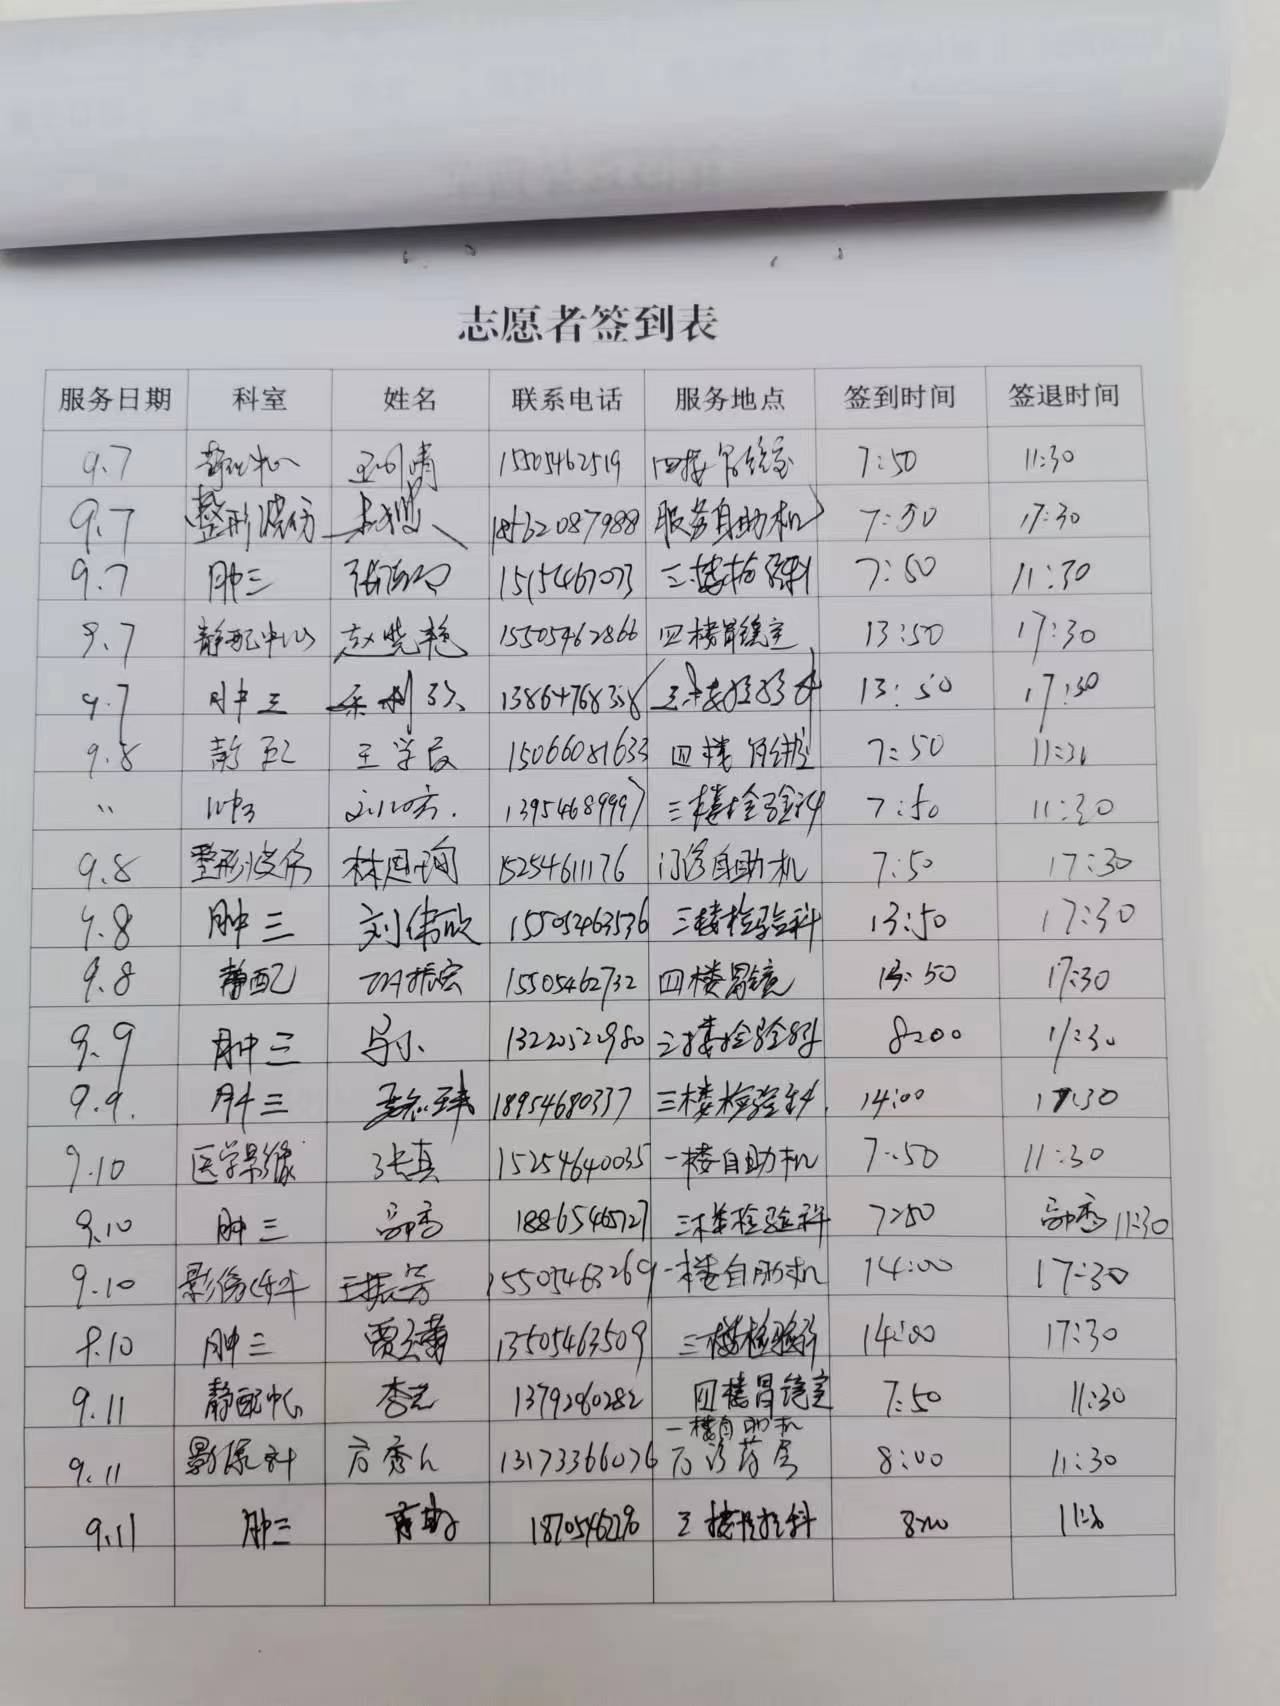 志愿者签到表
服务日期 科室 姓名 联系电话 服务地点 签到时间 签退时间
9.7 15505462519 四楼胃镜室 7:50 11:30
9.7 整形烧伤 18562087988 服务自助机 7:50 17:30
9.7 肿三 三楼检验科 7:50 11:30
9.7 静配中心 赵晓艳 15505462866 四楼胃镜室 13:50 17:30
9.7 肿三 13864768358 三楼检验科 13:50 17:30
9.8 静配 15066081633 四楼胃镜室 7:50 11:30
〃 肿3 13954689997 三楼检验科 7:50 11:30
9.8 整形烧伤 林恩珣 15254611176 门诊自助机 7:50 17:30
9.8 肿三 刘伟欣 15505463536 三楼检验科 13:50 17:30
9.8 静配 15505462732 四楼胃镜 13:50 17:30
9.9 肿三 13220522980 三楼检验科 8:00 11:30
9.9. 肿三 18954680337 三楼检验科. 14:00 17:30
9.10 医学影像 张真 15254640035 一楼自助机 7:50 11:30
9.10 肿三 18865465727 三楼检验科 7:50 11:30
9.10 影像科 王振芳 15505463269 一楼自助机 14:00 17:30
9.10 肿三 13505463509 三楼检验科 14:00 17:30
9.11 静配中心 李芝 1379260282 四楼胃镜室 7:50 11:30
一楼自助机
9.11 影像科 方秀 13173366076 门诊药房 8:00 11:30
9.11 肿三 三楼检验科 8:00 11:30